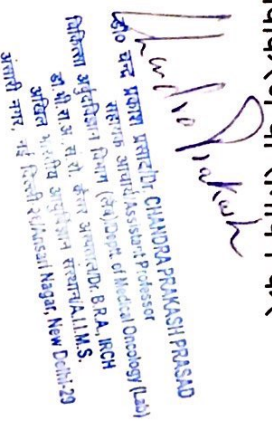 Chandra Prakash
डा० चन्द्र प्रकाश प्रसाद/Dr. CHANDRA PRAKASH PRASAD
सहायक आचार्य/Assistant Professor
चिकित्सा अर्बुदविज्ञान विभाग (लैब)/Dept. of Medical Oncology (Lab)
डा. भी.रा.अ. सं.रो. कैंसर अस्पताल/Dr. B.R.A. IRCH
अखिल भारतीय आयुर्विज्ञान संस्थान/A.I.I.M.S.
अंसारी नगर, नई दिल्ली-29/Ansari Nagar, New Delhi-29